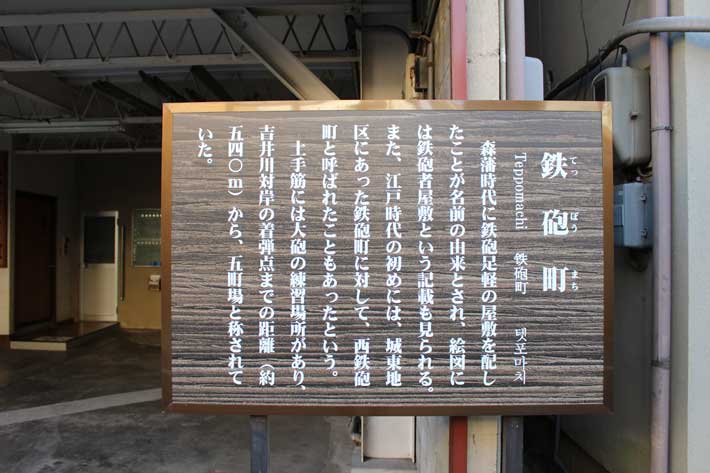 鉄砲町
てっ ぽう まち
Teppomachi 鉄砲町 뎃포마치
森藩時代に鉄砲足軽の屋敷を配し
たことが名前の由来とされ、絵図に
は鉄砲者屋敷という記載も見られる。
また、江戸時代の初めには、城東地
区にあった鉄砲町に対して、西鉄砲
町と呼ばれたこともあったという。
土手筋には大砲の練習場所があり、
吉井川対岸の着弾点までの距離（約
五四〇m）から、五町場と称されて
いた。